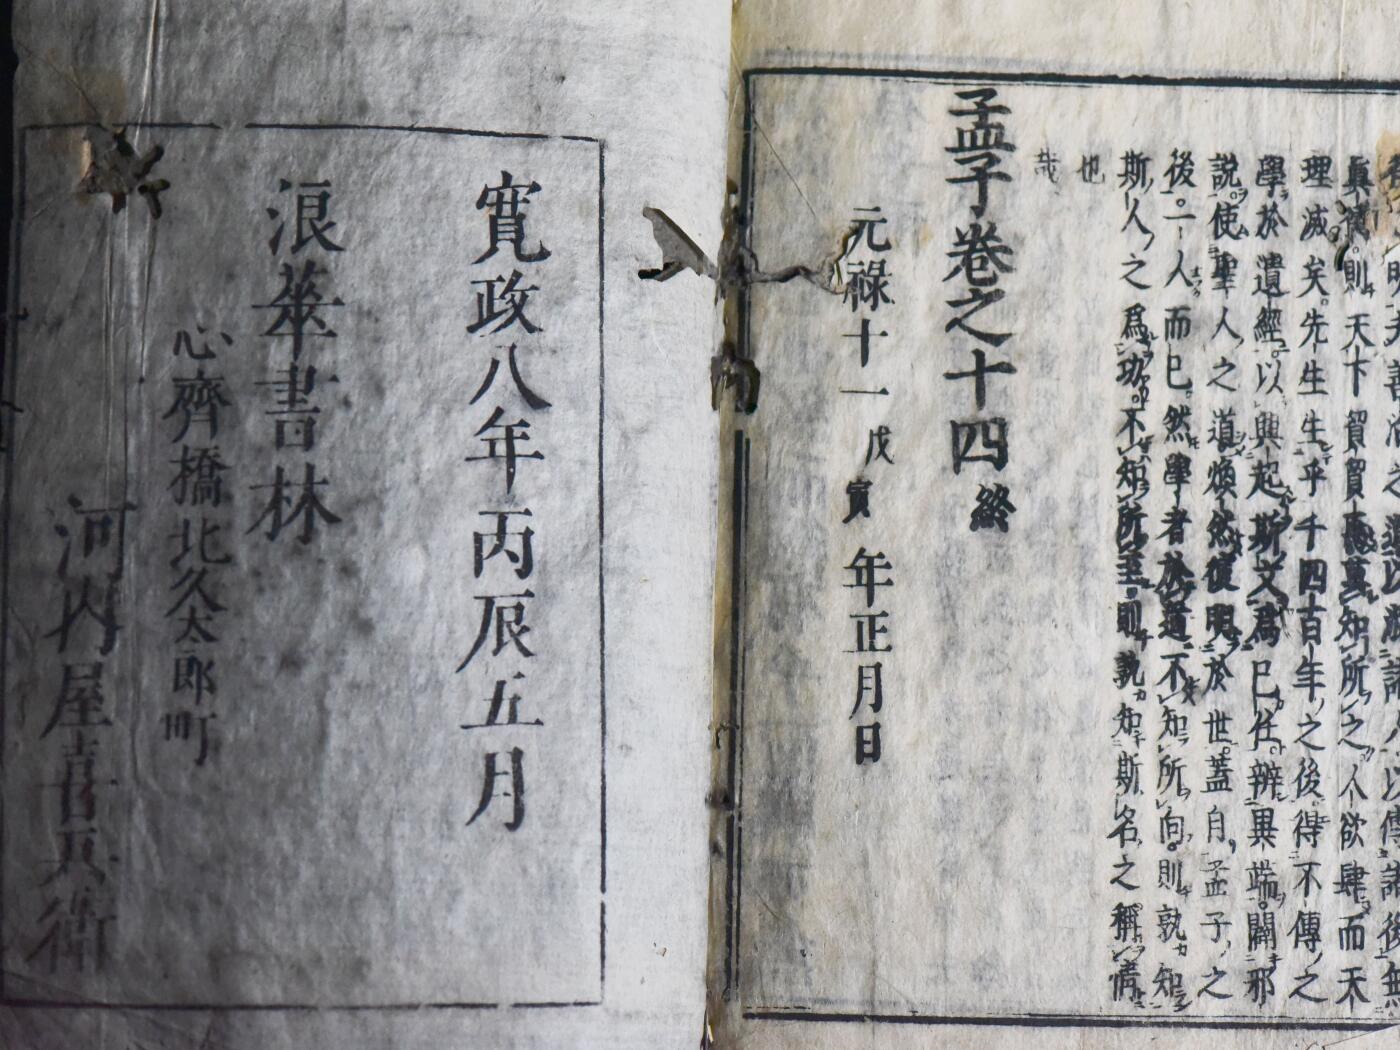 理滅矣。先生生乎千四百年之後。得不傳之
學於遺經。以興起斯文爲已任。辨異端。闢邪
說。使聖人之道煥然復明於世。蓋自孟子之
後。一人而已。然學者於道不知所向。則孰知
斯人之爲功。不知所至。則孰知斯名之稱情
也
哉
孟子卷之十四終
元祿十一戊寅年正月日
寛政八年丙辰五月
浪華書林
心齊橋北久太郎町
河内屋喜兵衛